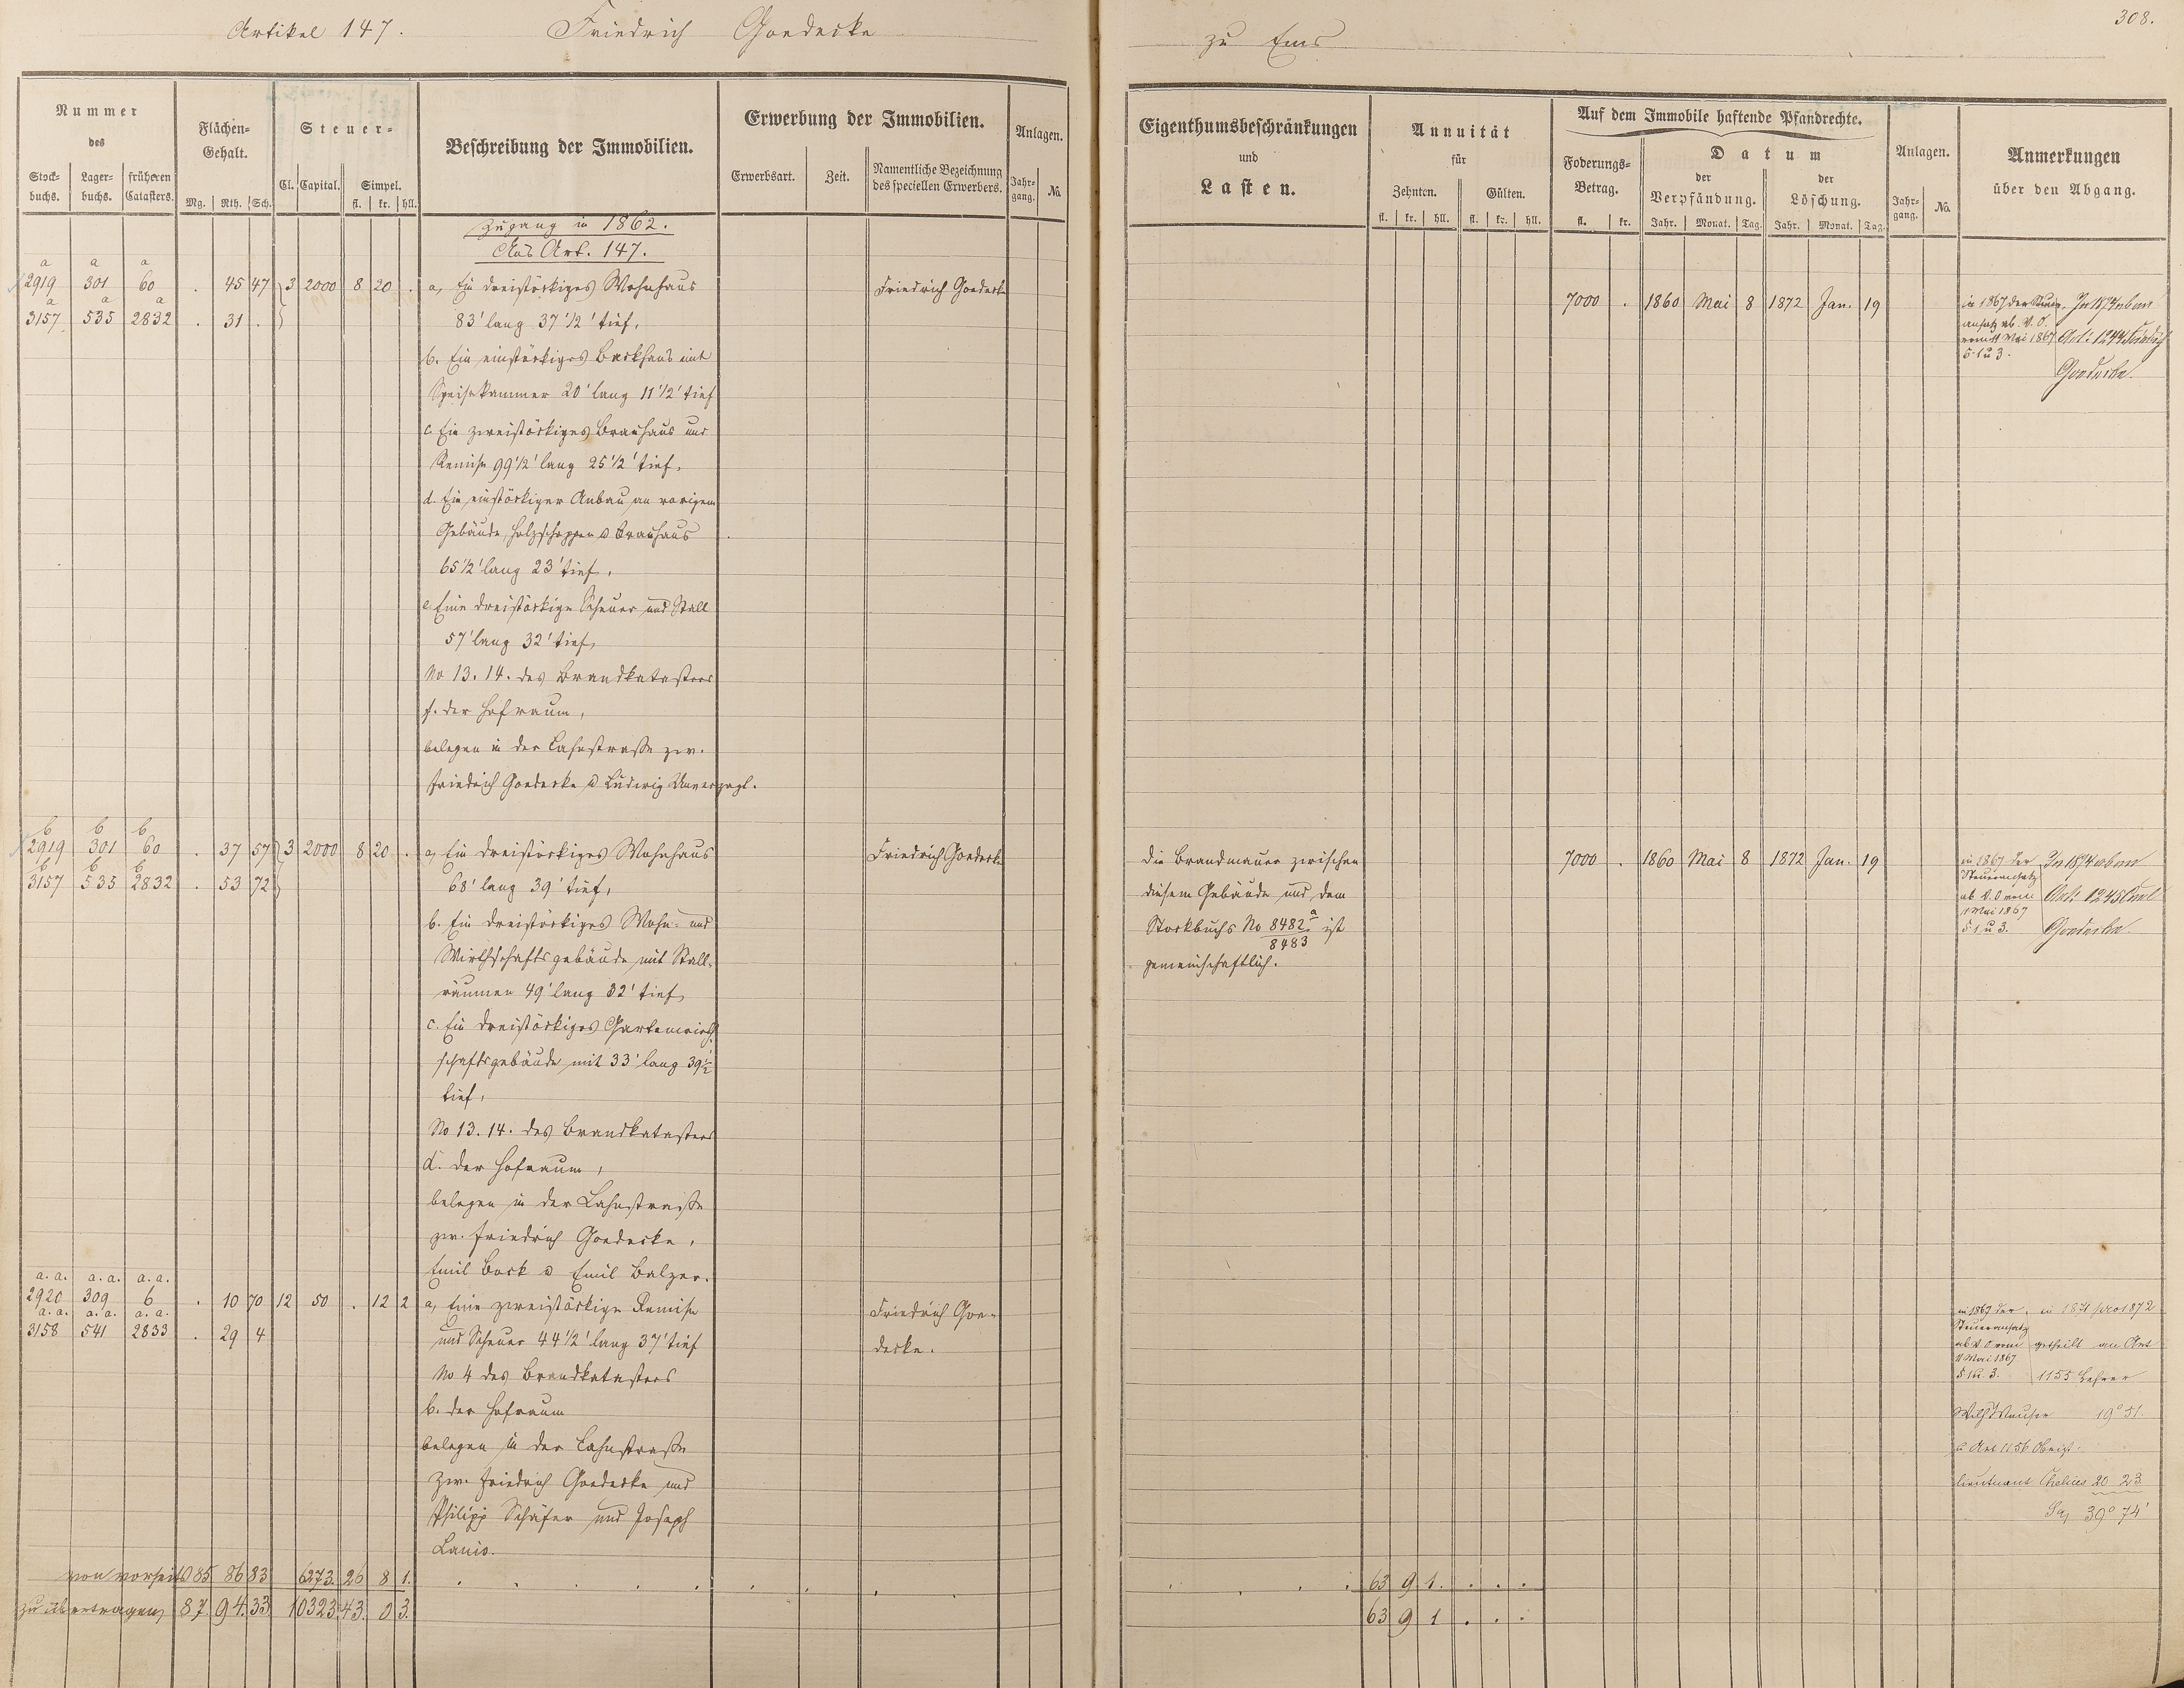 Artikel 147. Friedrich Goedecke
zu Ems
308.
Nummer des
Stockbuchs. Lagerbuchs. früheren Catasters.
Flächen-Gehalt.
Mg. Rth. Sch.
Steuer-
Cl. Capital. Simpel.
fl. kr. hll.
Beschreibung der Immobilien.
Erwerbung der Immobilien.
Erwerbsart. Zeit. Namentliche Bezeichnung des speciellen Erwerbers.
Anlagen.
Jahrgang. No.
Eigenthumsbeschränkungen
und
Lasten.
Annuität
für
Zehnten. Gülten.
fl. kr. hll. fl. kr. hll.
Auf dem Immobile haftende Pfandrechte.
Foderungs-Betrag.
fl. kr.
Datum
der Verpfändung. der Löschung.
Jahr. Monat. Tag. Jahr. Monat. Tag.
Anlagen.
Jahrgang. No.
Anmerkungen
über den Abgang.
Zugang in 1862.
Aus Art. 147.
a a a
2919 301 60 . 45 47 3 2000 8 20 . a, Ein dreistöckiges Wohnhaus Friedrich Goedecke
a a a
3157 535 2832 . 31 . 83' lang 37 1/2' tief,
7000 . 1860 Mai 8 1872 Jan. 19
in 1867 der Steuer-
ansatz ab V. O.
vom 11 Mai 1867
§ 1 u 3.
In 1874 uben
Art: 1244 Friedrich
Goedecke.
b. Ein einstöckiges Backhaus mit
Speisekammer 20' lang 11 1/2' tief
c. Ein zweistöckiges Brauhaus und
Remise 99 1/2' lang 25 1/2' tief,
d. Ein einstöckiger Anbau an vorigem
Gebäude, Holzschoppen u Brauhaus
65 1/2' lang 23' tief,
e. Eine dreistöckige Scheuer und Stall
57' lang 32' tief,
No 13. 14. des Brandkatasters
f. der Hofraum,
belegen in der Lahnstraße zw.
Friedrich Goedecke u Ludwig Unverzagt.
b b b
2919 301 60 . 37 57 3 2000 8 20 . a, Ein dreistöckiges Wohnhaus Friedrich Goedecke
b b b
3157 535 2832 . 53 72 68' lang 39' tief,
Die Brandmauer zwischen
diesem Gebäude und dem
Stockbuchs No 8482 a ist
8483
gemeinschaftlich.
7000 . 1860 Mai 8 1872 Jan. 19
in 1867 der
Steueransatz
ab V. O vom
11 Mai 1867
§ 1 u 3.
In 1874 uben
Art: 1245 Emil
Goedecke.
b. Ein dreistöckiges Wohn- und
Wirthschaftsgebäude mit Stall-
räumen 49' lang 32' tief,
c. Ein dreistöckiges Gartenwirth-
schaftsgebäude mit 33' lang 39 1/2'
tief,
No 13. 14. des Brandkatasters
d. der Hofraum,
belegen in der Lahnstraße
zw. Friedrich Goedecke,
Emil Bock u Emil Balzer.
a.a. a.a. a.a.
2920 309 6 . 10 70 12 50 . 12 2 a, Eine zweistöckige Remise Friedrich Goe-
a.a. a.a. a.a.
3158 541 2833 . 29 4 und Scheuer 44 1/2' lang 37' tief decke.
No 4 des Brandkatasters
b. der Hofraum
belegen in der Lahnstraße
zw. Friedrich Goedecke und
Philipp Schäfer und Joseph
Lanio.
in 1867 der
Steueransatz
ab V. O vom
11 Mai 1867
§ 1 u. 3.
in 1871 pro 1872
getheilt an Art
1155 Lehrer
Wilh 19° 51.
u Art 1156
lieutenant 20 23
Sa, 39° 74'
von vorseits 85 86 83 6273. 26 8 1. 63 9 1. . . .
zu übertragen, 87. 94. 33 10323 43. 0 3. 63 9 1 . . .